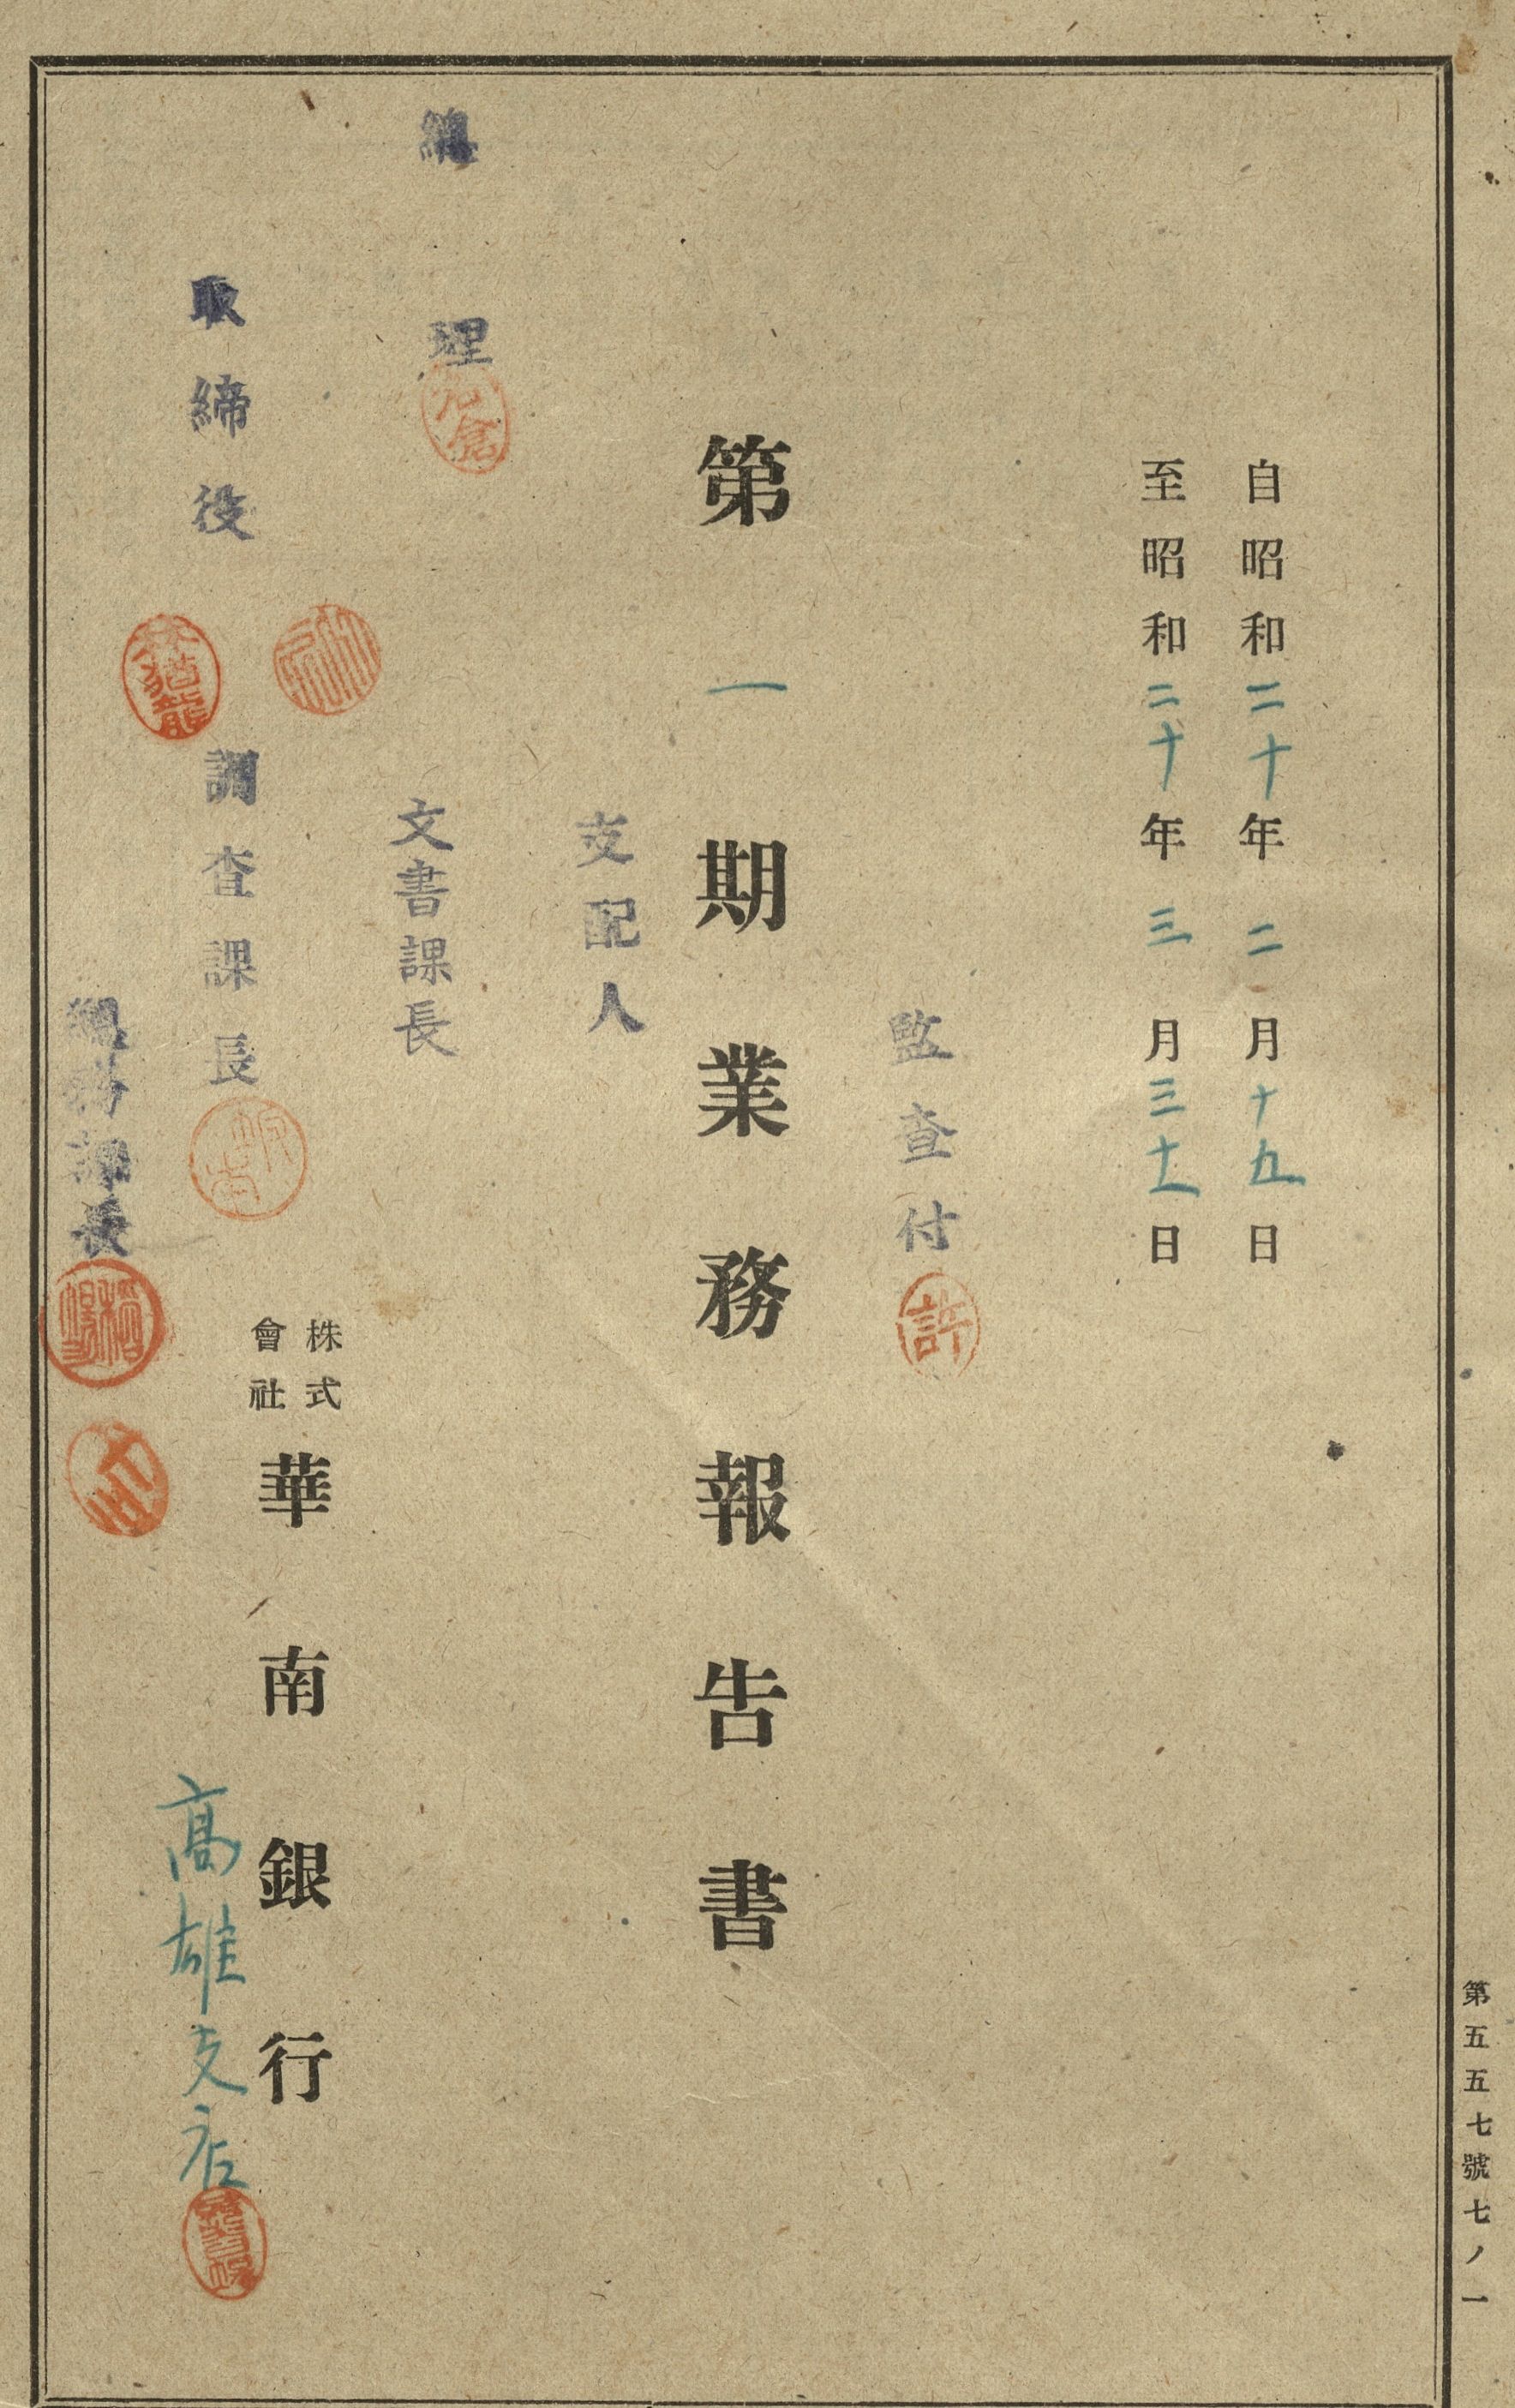 自昭和二十年二月十五日
至昭和二十年三月三十一日
監查付
許
第一期業務報告書
支配人
總理
文書課長
取締役
調查課長
株式會社華南銀行
高雄支店
總務課長
第五五七號七ノ一